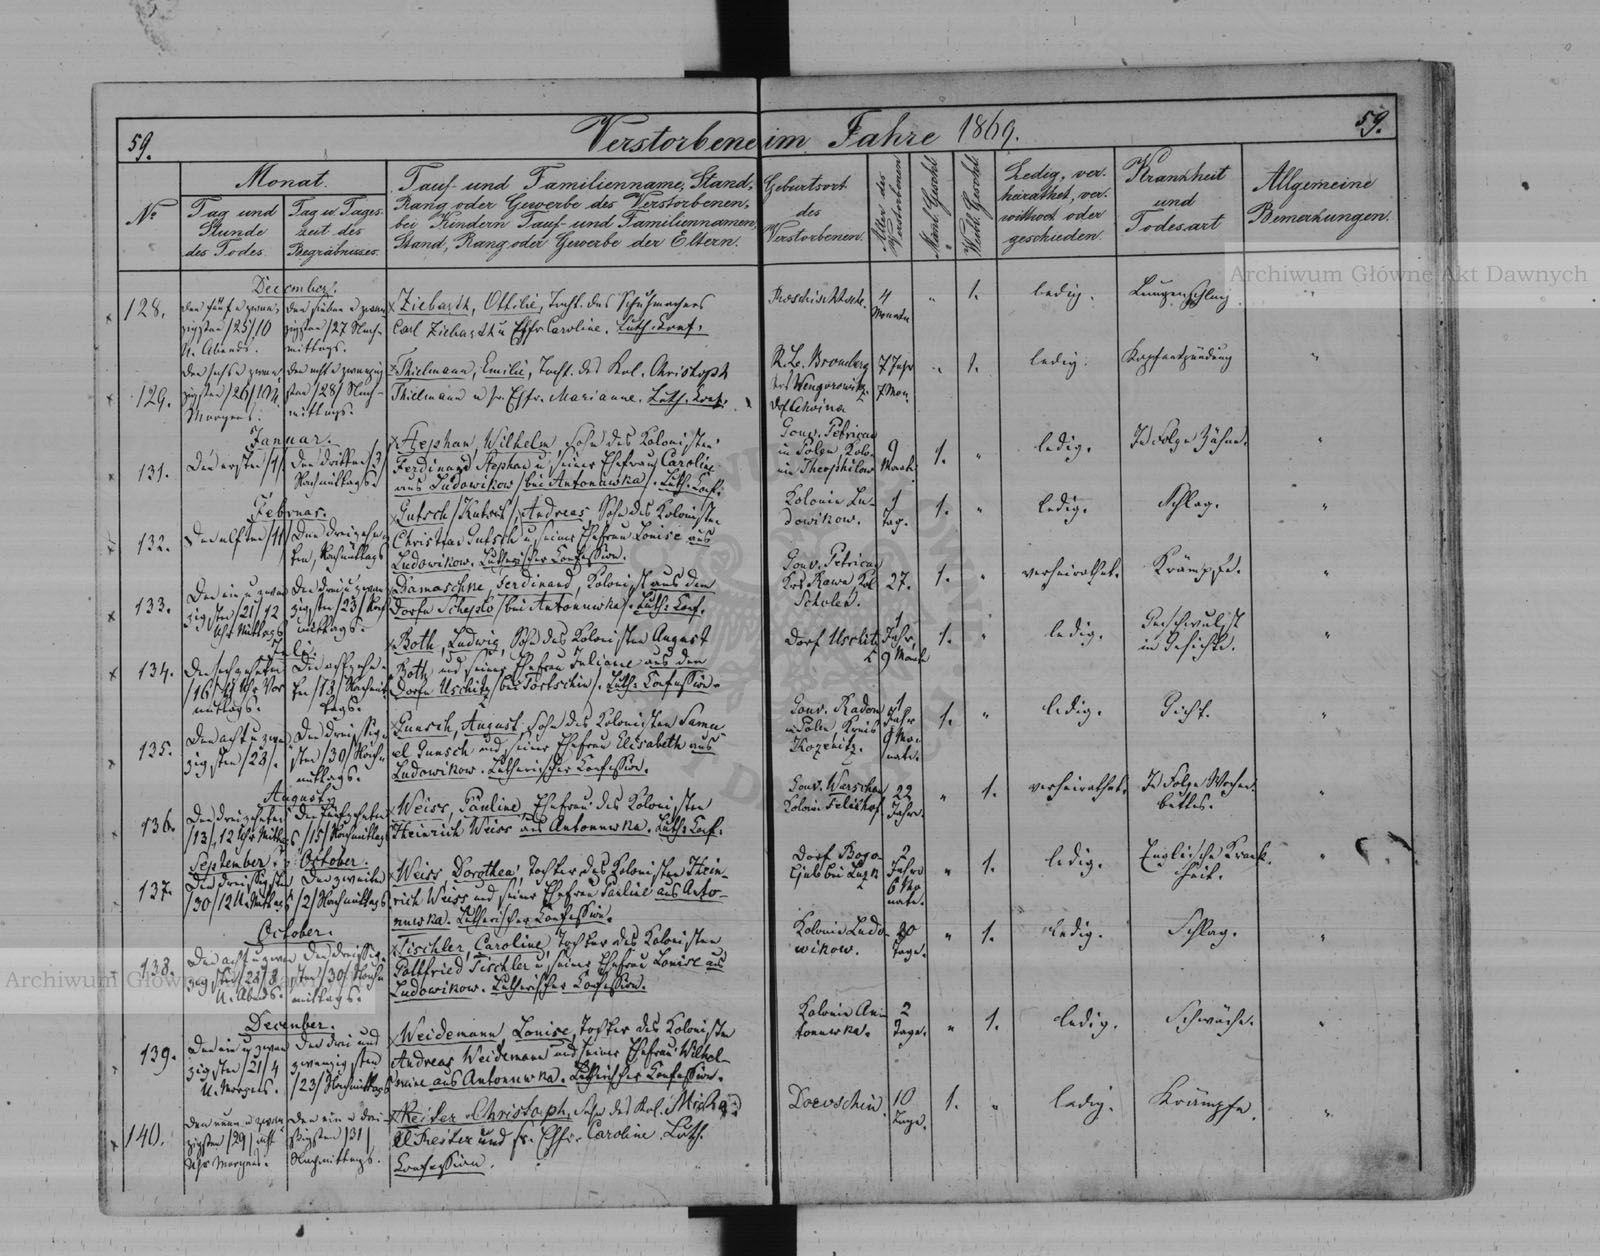 59.
Verstorbene im Jahre 1869.
59.
Nr
Monat.
Tag und
Stunde
des Todes.
Tag u. Tages-
zeit des
Begräbnisses.
Tauf- und Familienname, Stand,
Rang oder Gewerbe des Verstorbenen,
bei Kindern Tauf- und Familiennamen,
Stand, Rang oder Gewerbe der Eltern.
Geburtsort
des
Verstorbenen.
Alter des
Verstorbenen
Männl. Geschl.
Weibl. Geschl.
Ledig, ver-
heirathet, ver-
wittwet oder
geschieden.
Krankheit
und
Todesart
Allgemeine
Bemerkungen.
December.
128.
den fünf u zwan-
zigsten /25/ 10
U. Abends.
den sieben u zwan
zigsten /27 Nach-
mittags.
Ziebarth, Ottilie, Tocht. des Schuhmachers
Carl Ziebarth u Ehfr Caroline. Luth. Conf.
4
Monate
"
1.
ledig.
Lungenschlag
"
129.
den sechs u zwan
zigsten /26/
Morgens.
den acht u zwanzig
sten /28/ Nach-
mittags.
Thielmann, Emilie, Tocht. des Kol. Christoph
Thielmann u sr. Ehfr. Marianne. Luth. Conf.
Bromberg
7 Jahr
7 Mon.
"
1.
ledig.
Kopfentzündung
"
Januar.
131.
Den ersten /1/
Den dritten /3/
Nachmittags.
Hephan, Wilhelm, Sohn des Kolonisten
Ferdinand Hephan u seiner Ehefrau Caroline
aus Ludowikow /bei Antonuwka/. Luth. Conf.
Gouv. Petricau
in Polen, Kolo-
nie Theophilow
9
Monat.
1.
"
ledig.
In Folge Zähne.
"
Februar.
132.
Den elften /11/
Den dreizehn-
ten, Nachmittags
Gutsch /Kutsch/, Andreas, Sohn des Kolonisten
Christian Gutsch u seiner Ehefrau Louise aus
Ludowikow. Lutherischer Confession.
Kolonie Lu-
dowikow.
1
Tag.
1.
"
ledig.
Schlag.
"
133.
Den ein u zwan
zigsten /21/ 12
Uhr Mittags
Den drei u zwan
zigsten /23/ Nach
mittags.
Damaschne, Ferdinand, Kolonist aus dem
Dorfe Scheplo /bei Antonuwka/. Luth. Conf.
Gouv. Petricau
Krs. Rawa Kol
Scholen.
27.
1.
"
verheirathet.
Krämpfe.
"
Juli.
134.
Den sechszehnten
/16/ Uhr Vor
mittags.
Den achtzehn-
ten /18/ Nachmit
tags.
Both, Ludwig, Sohn des Kolonisten August
Both und seiner Ehefrau Juliane aus dem
Dorfe Uschitz /bei Tortschin/. Luth. Confession.
Dorf Uschitz
1
Jahr,
9 Monate
1.
"
ledig.
Geschwulst
im Gesichte.
"
135.
Den acht u zwan
zigsten /28/.
Den dreissig-
sten /30/ Nach-
mittags.
Gunsch, August, Sohn des Kolonisten Samu-
el Gunsch und seiner Ehefrau Elisabeth aus
Ludowikow. Lutherischer Confession.
Gouv. Radom
in Polen Kreis
Kozenitz.
1
Jahr
9 Mo-
nate.
1.
"
ledig.
Gicht.
"
August.
136.
Den dreizehnten
/13/, 12 Uhr Mittags
Den fünfzehnten
/15/ Nachmittags
Weiss, Pauline, Ehefrau des Kolonisten
Heinrich Weiss aus Antonuwka. Luth. Conf.
Gouv. Warschau
Kolonie
22
Jahre.
"
1.
verheirathet.
In Folge Wochen-
bettes.
"
September. October.
137.
Den dreissigsten
/30/ 12 U. Mittags
Den zweiten
/2/ Nachmittags
Weiss Dorothea, Tochter des Kolonisten Hein-
rich Weiss und seiner Ehefrau Pauline aus Anto-
nuwka. Lutherischer Confession.
Dorf Bogo-
2
Jahre
6 Mo
nate.
"
1.
ledig.
Englische Krank-
heit.
"
October.
138.
Den acht u zwan
zigsten /28/ 8
U. Abends.
Den dreissig-
sten /30/ Nach-
mittags.
Tischler, Caroline, Tochter des Kolonisten
Gottfried Tischler u seiner Ehefrau Louise aus
Ludowikow. Lutherischer Confession.
Kolonie Ludo-
wikow.
Tage.
"
1.
ledig.
Schlag.
"
December.
139.
Den ein u zwan
zigsten /21/ 4
U. Morgens.
Den drei und
zwanzigsten
/23/ Nachmittags
Weidemann, Louise, Tochter des Kolonisten
Andreas Weidemann und seiner Ehefrau Wilhel-
mine aus Antonuwka. Lutherischer Confession.
Kolonie An-
tonuwka.
2
Tage.
"
1.
ledig.
Schwäche.
"
140.
Den neun u zwan
zigsten /29/ acht
Uhr Morgens.
Den ein u drei-
ßigsten /31/
Nachmittags.
Reiter Christoph, Sohn des Kol. Micha-
el Reiter und sr. Ehfr. Caroline. Luth.
Confession.
10
Tage.
1.
"
ledig.
Krämpfe.
"
Archiwum Główne Akt Dawnych
Archiwum Główne Akt Dawnych